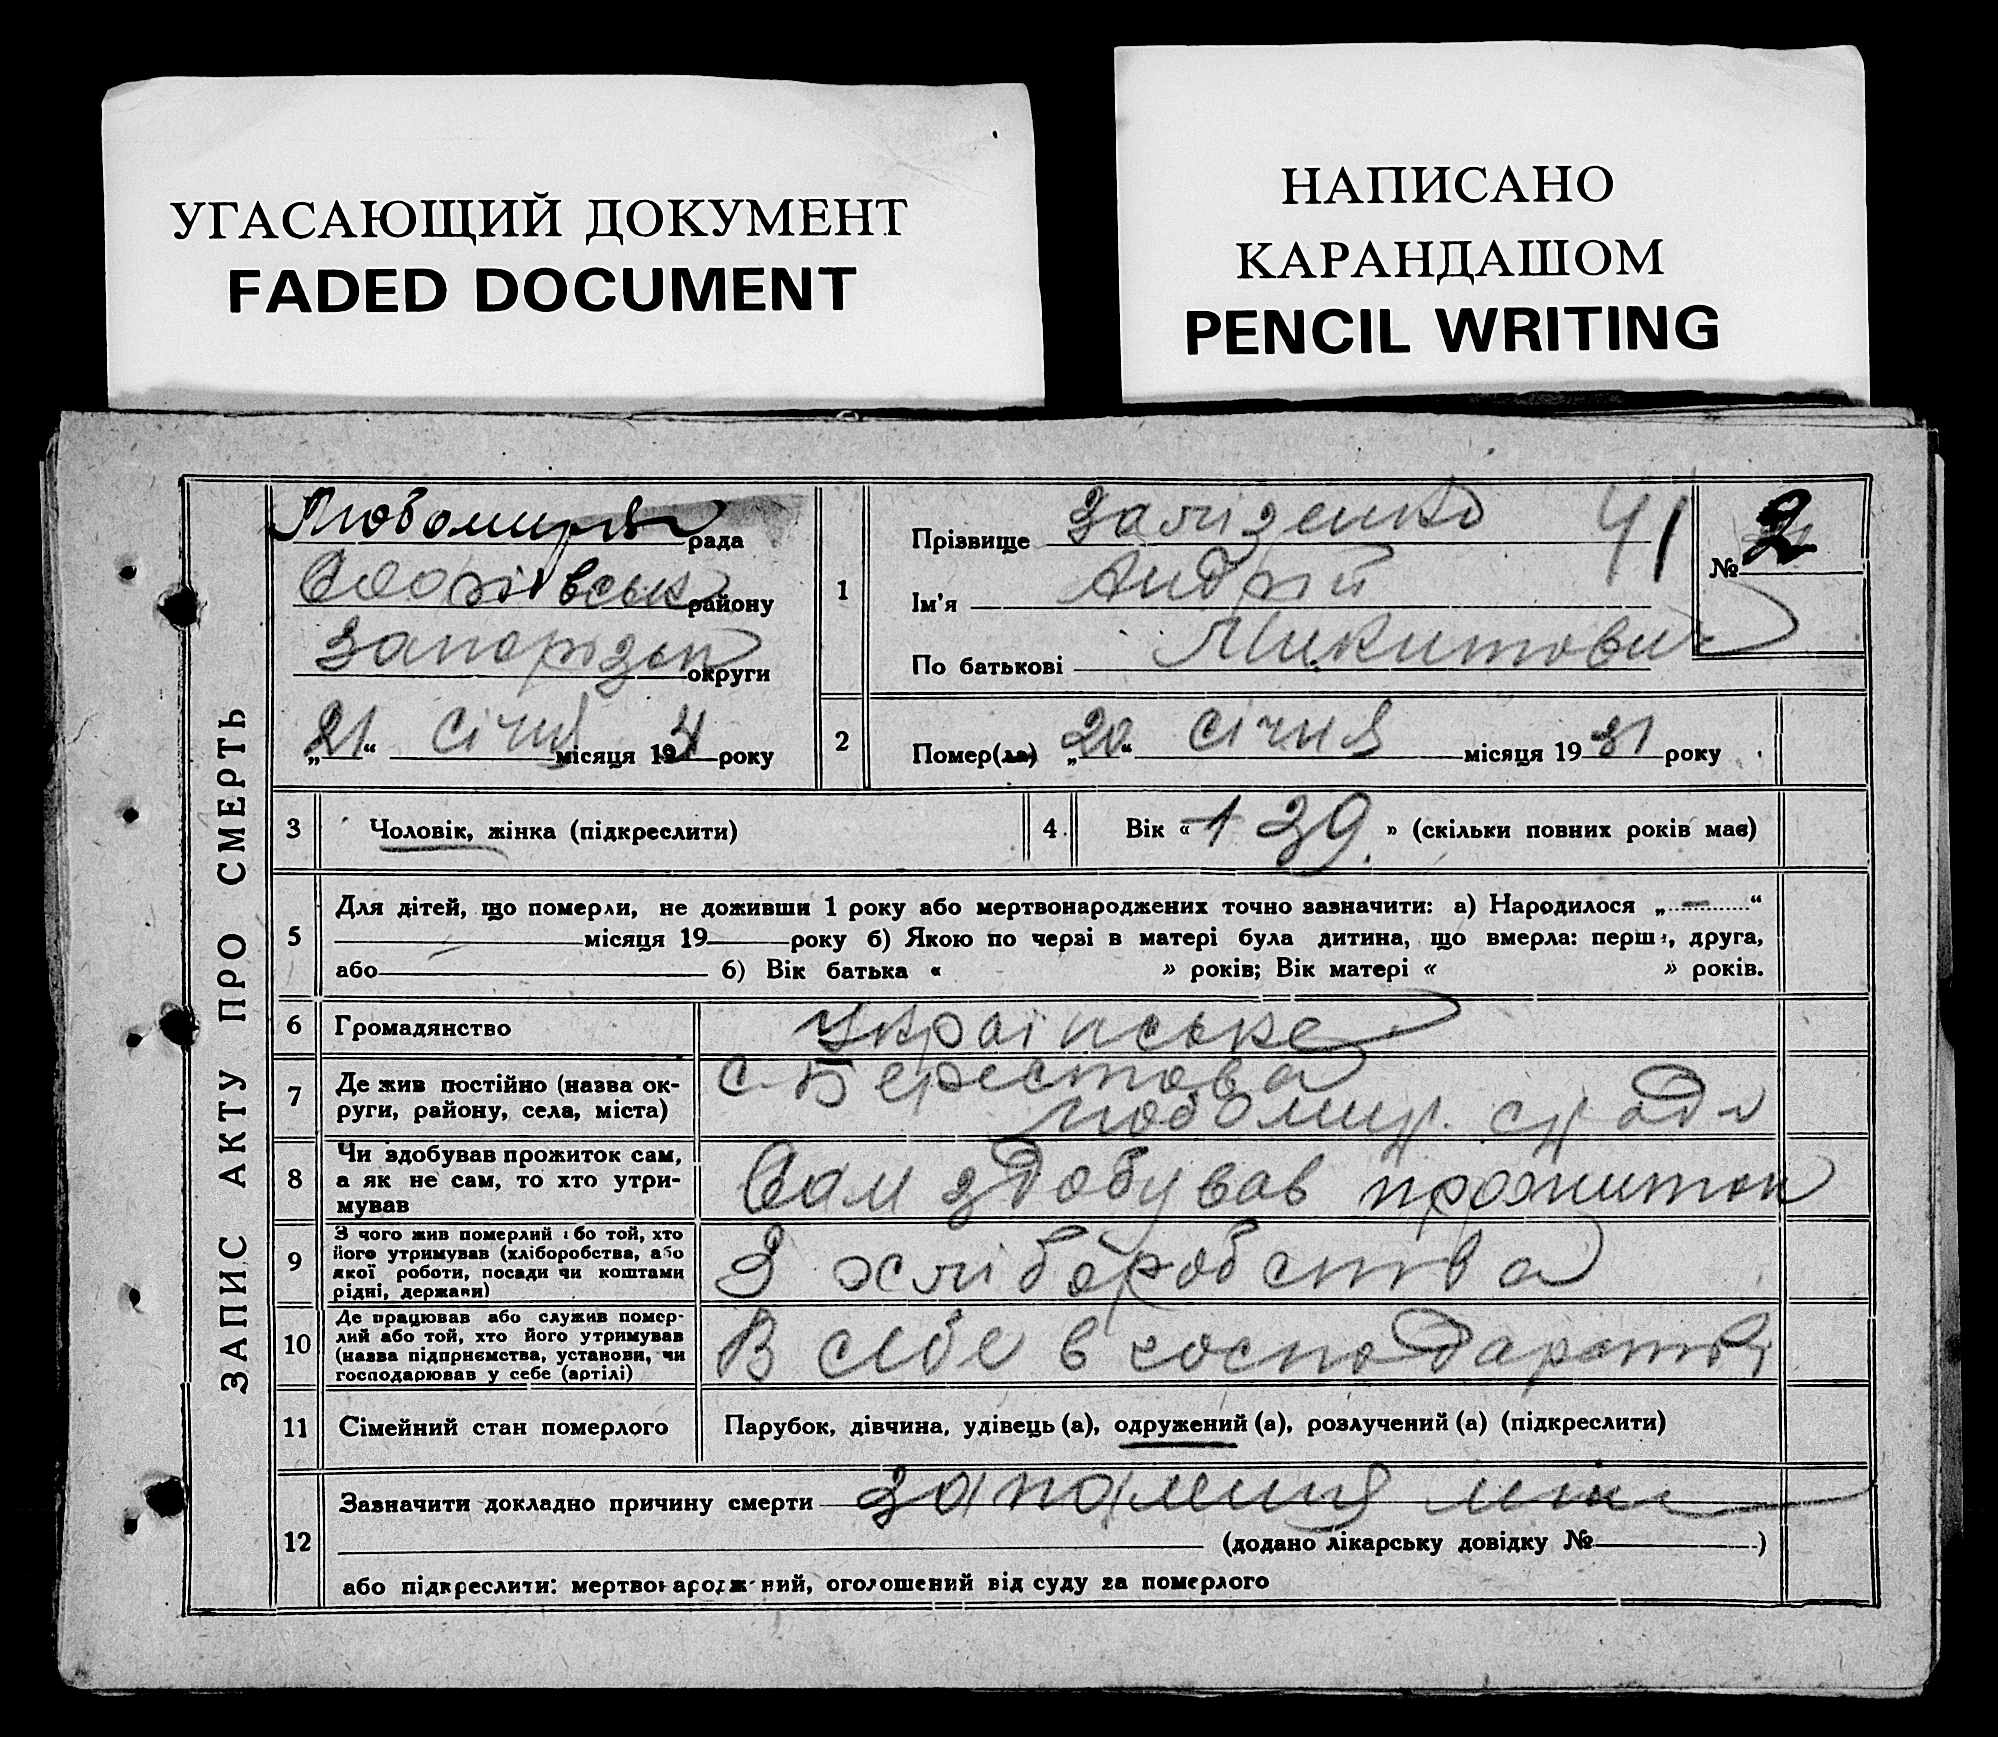 УГАСАЮЩИЙ ДОКУМЕНТ
FADED DOCUMENT
НАПИСАНО
КАРАНДАШОМ
PENCIL WRITING
ЗАПИС АКТУ ПРО СМЕРТЬ
Любомирів рада
району
Запорізьк округи
„21“ Січня місяця 19 року
1
Прізвище Залізенко 41
№ 2
Ім'я Андрій
По батькові Микитович
2
Помер(ла) „20“ Січня місяця 19 31 року
3 Чоловік, жінка (підкреслити)
4 Вік « 39 » (скільки повних років має)
5 Для дітей, що померли, не доживши 1 року або мертвонароджених точно зазначити: а) Народилося „ — “
місяця 19 року б) Якою по черзі в матері була дитина, що вмерла: перша, друга,
або б) Вік батька « » років; Вік матері « » років.
6 Громадянство Українське
7 Де жив постійно (назва ок-
руги, району, села, міста)
с Берестова
Любомир. с/рада
8 Чи здобував прожиток сам,
а як не сам, то хто утри-
мував
Сам здобував прожиток
9 З чого жив померлий або той, хто
його утримував (хліборобства, або
якої роботи, посади чи коштами
рідні, держави)
З хліборобства
10 Де працював або служив помер-
лий або той, хто його утримував
(назва підприємства, установи, чи
господарював у себе (артілі)
В себе в господарстві
11 Сімейний стан померлого Парубок, дівчина, удівець (а), одружений (а), розлучений (а) (підкреслити)
12 Зазначити докладно причину смерти запалення
(додано лікарську довідку № )
або підкреслити: мертвонароджений, оголошений від суду за померлого